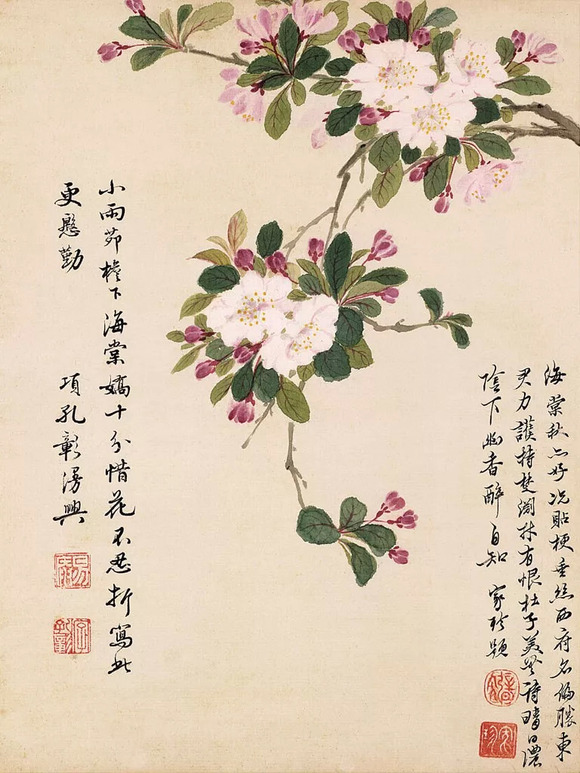 海棠秋亦好況貼梗垂絲西府名徧勝東
君力護持彭淵材有恨杜子美無詩晴日濃
陰下幽香醉自知 家珍題
小雨茆檐下海棠嬌十分惜花不忍折寫此
更慇勤
項孔彰漫興